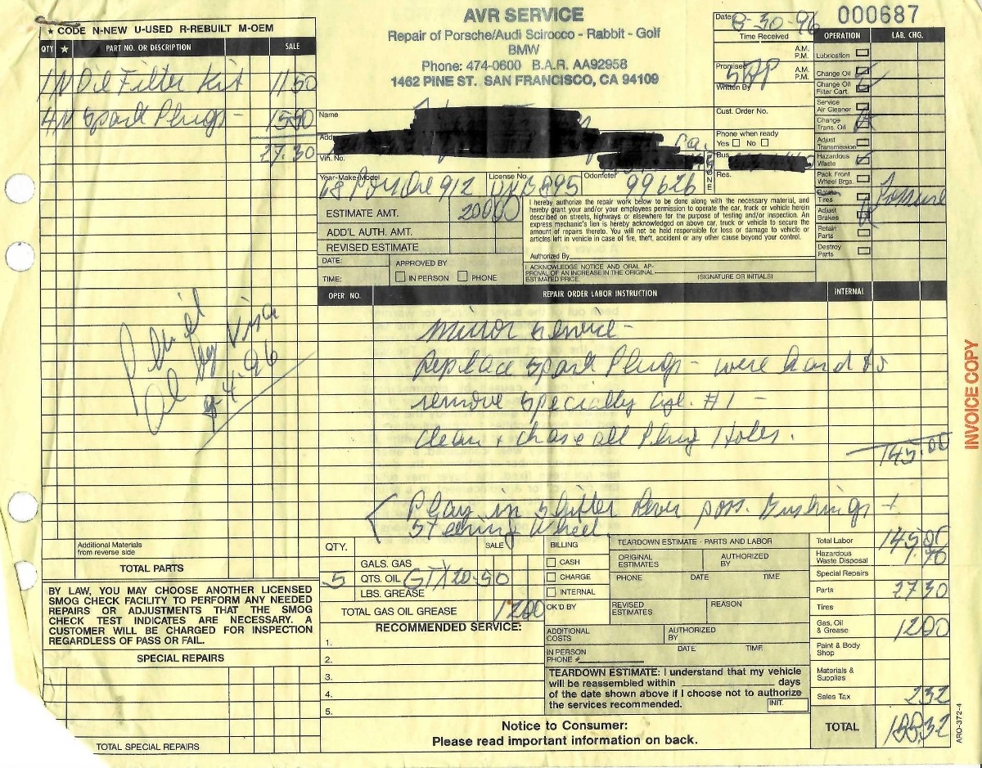 ★ CODE N-NEW U-USED R-REBUILT M-OEM
QTY ★ PART NO. OR DESCRIPTION SALE
1 N Oil Filter Kit 11 50
4 N Spark Plugs - 15 80
27.30
AVR SERVICE
Repair of Porsche/Audi Scirocco - Rabbit - Golf
BMW
Phone: 474-0600 B.A.R. AA92958
1462 PINE ST. SAN FRANCISCO, CA 94109
Date 8-30-96
000687
Time Received
A.M.
P.M.
Promised 5PP
A.M.
P.M.
Written By
Cust. Order No.
Phone when ready
Yes No
PHONE
Bus.
Res.
Name
Addr
Ca.
Vin. No.
Year-Make-Model License No. Odometer
68 Porsche 912 99626
OPERATION LAB. CHG.
Lubrication
Change Oil
Change Oil Filter Cart.
Service Air Cleaner
Change Trans. Oil
Adjust Transmission
Hazardous Waste
Pack Front Wheel Brgs.
Rotate Tires
Adjust Brakes
Retain Parts
Destroy Parts
ESTIMATE AMT. 200 00
ADD'L AUTH. AMT.
REVISED ESTIMATE
DATE: APPROVED BY
TIME: IN PERSON PHONE
I hereby authorize the repair work below to be done along with the necessary material, and
hereby grant you and/or your employees permission to operate the car, truck or vehicle herein
described on streets, highways or elsewhere for the purpose of testing and/or inspection. An
express mechanic's lien is hereby acknowledged on above car, truck or vehicle to secure the
amount of repairs thereto. You will not be held responsible for loss or damage to vehicle or
articles left in vehicle in case of fire, theft, accident or any other cause beyond your control.
Authorized By
I ACKNOWLEDGE NOTICE AND ORAL AP-
PROVAL OF AN INCREASE IN THE ORIGINAL
ESTIMATED PRICE.
(SIGNATURE OR INITIALS)
OPER. NO. REPAIR ORDER LABOR INSTRUCTION INTERNAL
minor service -
Replace Spark Plugs - were hard to
remove specially cyl. #1 -
clean + chase all Plug Holes.
145.00
Play in shifter lever poss. Bushings +
Steering Wheel
by Visa
9-4-96
INVOICE COPY
Additional Materials
from reverse side
TOTAL PARTS
BY LAW, YOU MAY CHOOSE ANOTHER LICENSED
SMOG CHECK FACILITY TO PERFORM ANY NEEDED
REPAIRS OR ADJUSTMENTS THAT THE SMOG
CHECK TEST INDICATES ARE NECESSARY. A
CUSTOMER WILL BE CHARGED FOR INSPECTION
REGARDLESS OF PASS OR FAIL.
SPECIAL REPAIRS
TOTAL SPECIAL REPAIRS
QTY. SALE
GALS. GAS
5 QTS. OIL GTX 20-50
LBS. GREASE
TOTAL GAS OIL GREASE 12 00
RECOMMENDED SERVICE:
1.
2.
3.
4.
5.
BILLING
CASH
CHARGE
INTERNAL
OK'D BY
TEARDOWN ESTIMATE - PARTS AND LABOR
ORIGINAL ESTIMATES AUTHORIZED BY
PHONE DATE TIME
REVISED ESTIMATES REASON
ADDITIONAL COSTS AUTHORIZED BY
IN PERSON DATE TIME
PHONE #
TEARDOWN ESTIMATE: I understand that my vehicle
will be reassembled within days
of the date shown above if I choose not to authorize
the services recommended. INIT.
Total Labor 145.00
Hazardous Waste Disposal 1.70
Special Repairs
Parts 27 30
Tires
Gas, Oil & Grease 12 00
Paint & Body Shop
Materials & Supplies
Sales Tax 2 32
TOTAL 188.32
ARO-372-4
Notice to Consumer:
Please read important information on back.